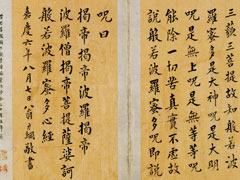 三藐三菩提故知般若波
羅蜜多是大神呪是大明
呪是無上呪是無等等呪
能除一切苦真實不虛故
說般若波羅蜜多呪即說
呪曰
揭帝揭帝波羅揭帝
波羅僧揭帝菩提薩婆訶
般若波羅蜜多心經
嘉慶六年八月七日翁方綱敬書